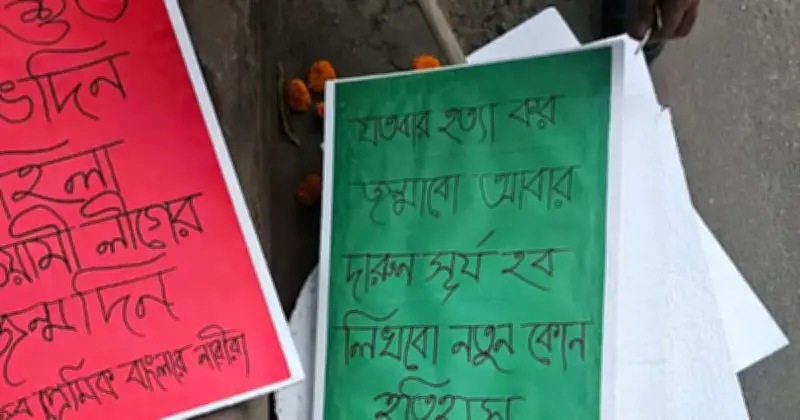 শুভ
ভদিন
হিলা
য়ামী লীগের
জন্মদিন
প্রেমিক বাংলার নারীরা
যতবার হত্যা কর
জন্মাবো আবার
দারুন সূর্য হব
লিখবো নতুন কোন
ইতিহাস